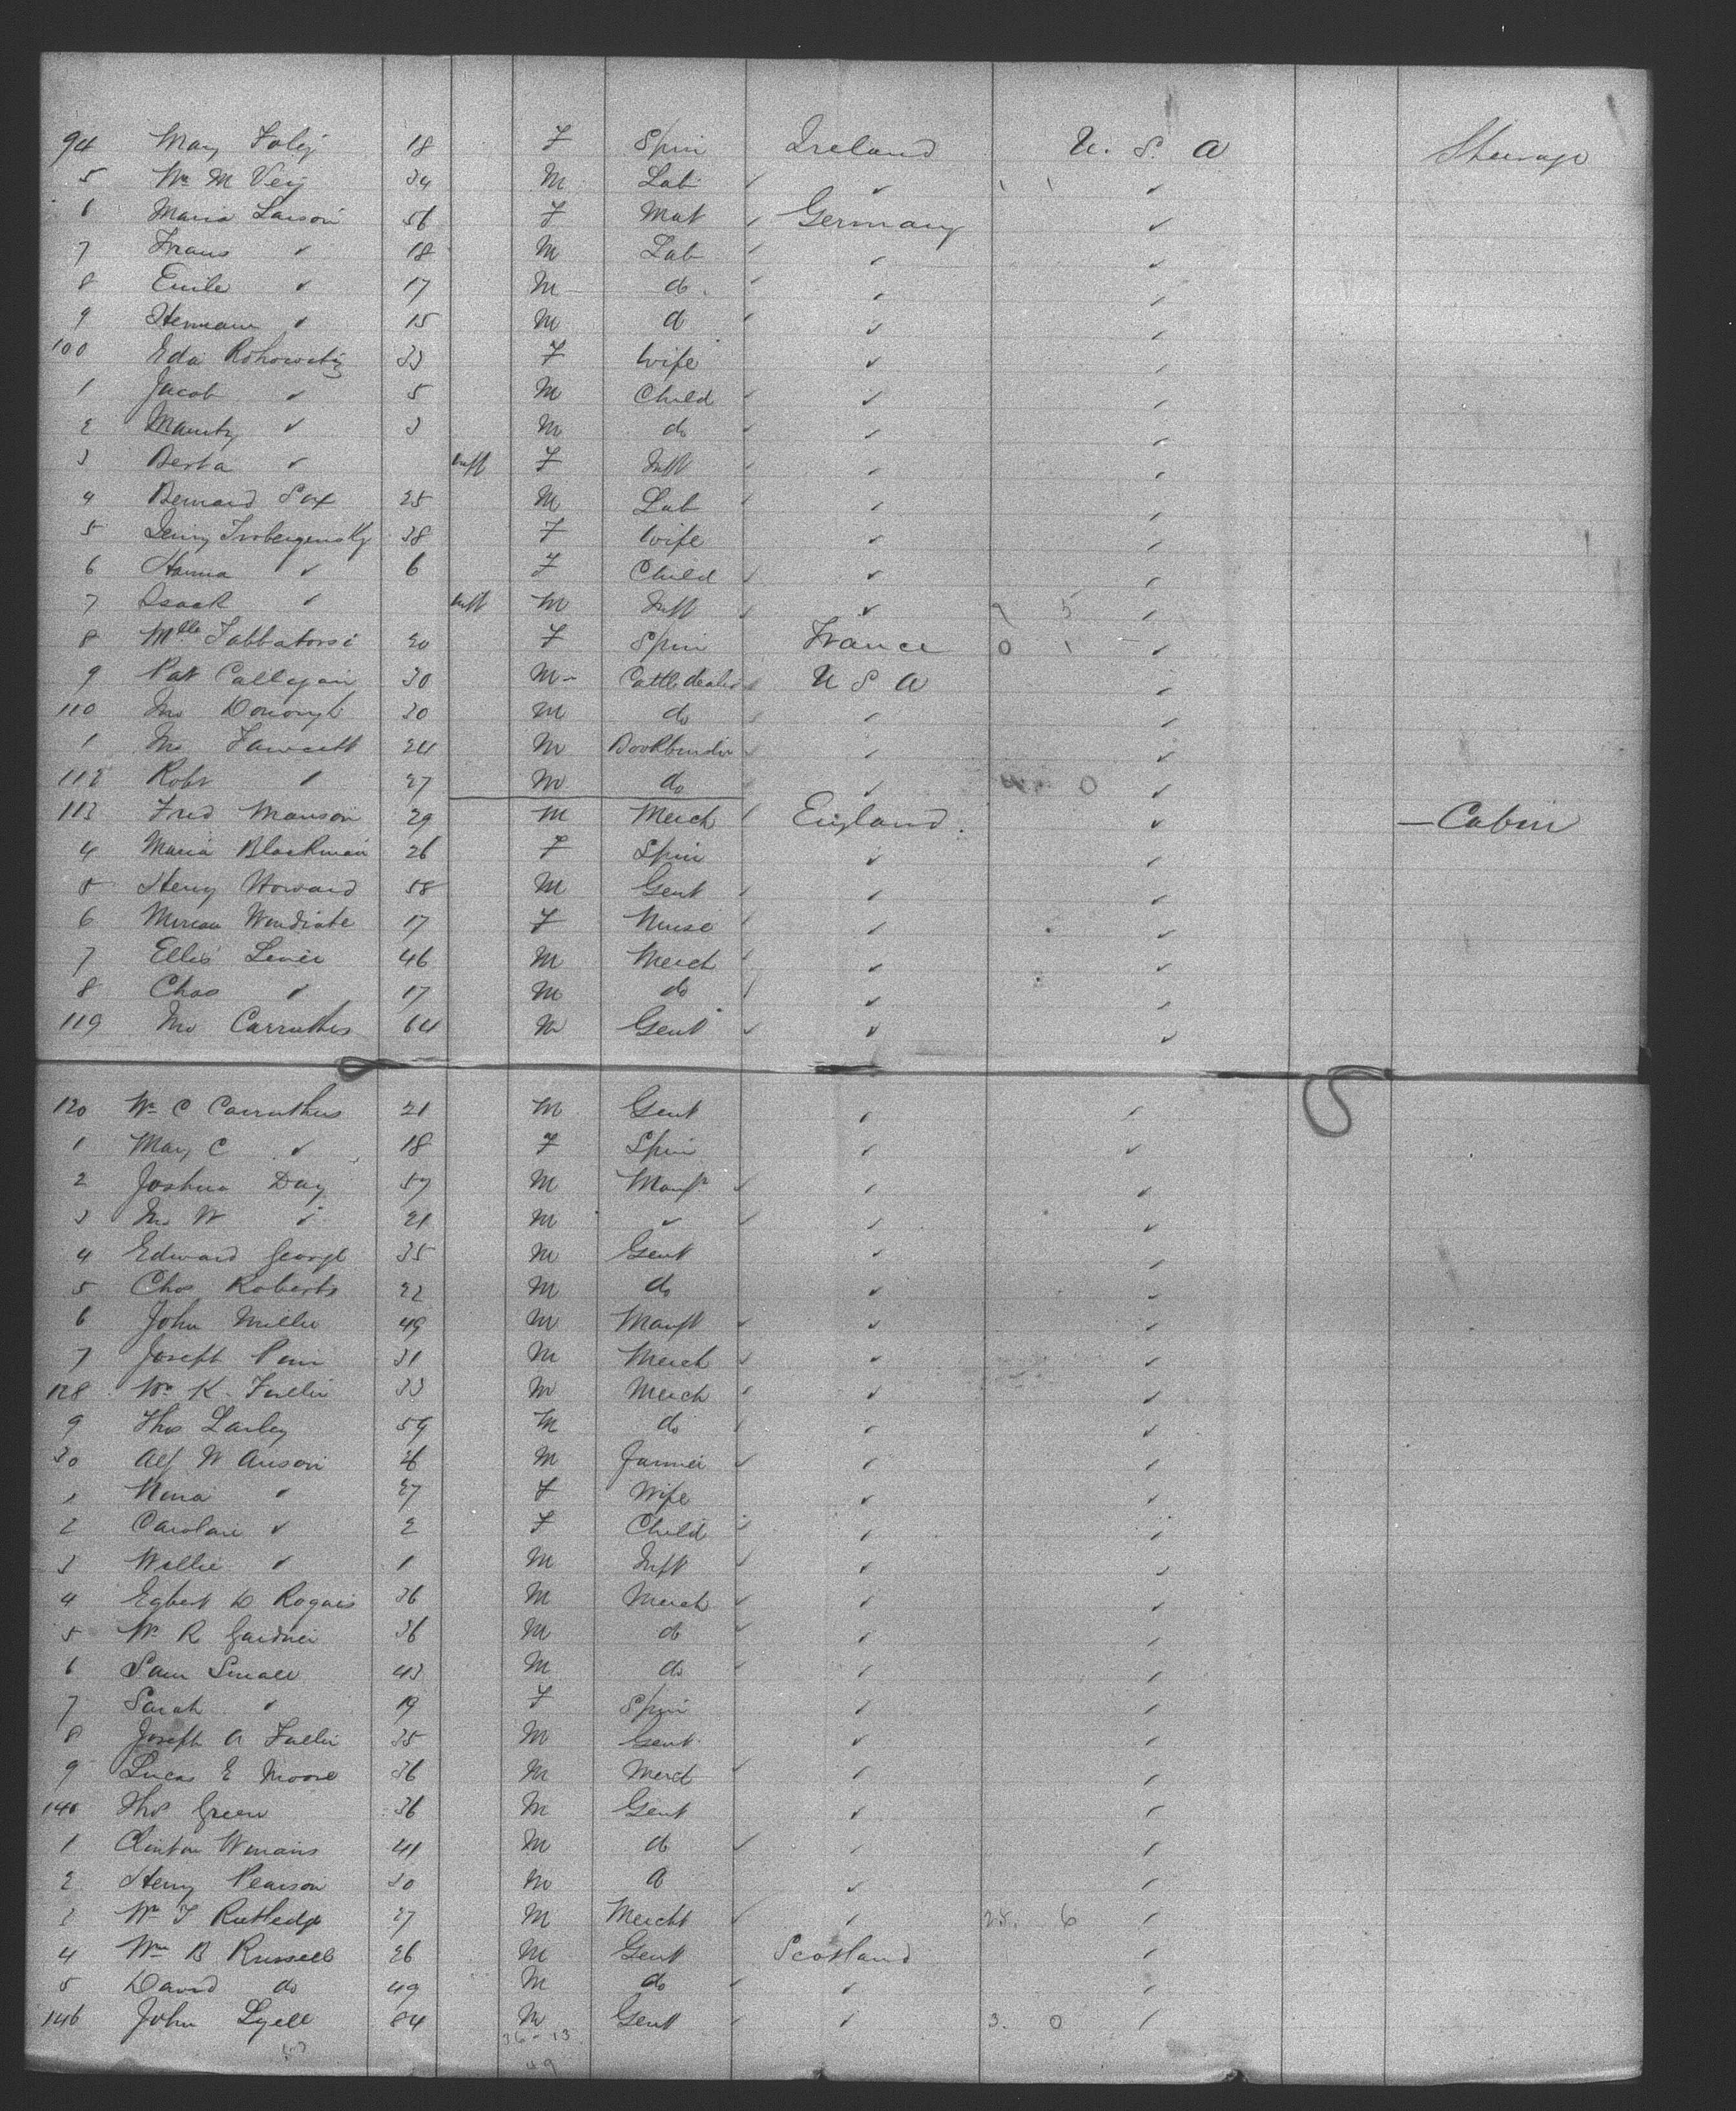 94 Mary Foley 18 F Spin Ireland U. S. A Steerage
5 Wm M Vey 34 M Lab ✓ ✓ ✓
6 Maria Larson 56 F Mat Germany ✓
7 Frans ✓ 18 M Lab ✓ ✓
8 Emile ✓ 17 M do ✓ ✓
9 Hermann ✓ 15 M do ✓ ✓
100 Eda 33 F Wife ✓ ✓
1 Jacob ✓ 5 M Child ✓ ✓
2 Mauritz ✓ 3 M do ✓ ✓
3 Berta ✓ Inft F Inft ✓ ✓
4 Bernard Sax 25 M Lab ✓ ✓
5 38 F Wife ✓ ✓
6 Hanna ✓ 6 F Child ✓ ✓
7 Isaak ✓ Inft M Inft ✓ 9 5 ✓
8 Mlle 20 F Spin France 0 1 ✓
9 Pat Callagan 30 M Cattle dealer U S A ✓
110 Jno Donough 30 M do ✓ ✓
1 Jno Fawcett 24 M Bookbinder ✓ ✓
112 Robt ✓ 27 M do ✓ 4 0 ✓
113 Fred Manson 29 M Merch England ✓ — Cabin
4 Maria Blackman 26 F Spin ✓ ✓
5 Henry Howard 58 M Gent ✓ ✓
6 17 F Nurse ✓ ✓
7 Ellis Lever 46 M Merch ✓ ✓
8 Chas ✓ 17 M do ✓ ✓
119 Jno Carruthers 64 M Gent ✓ ✓
120 Wm C Carruthers 21 M Gent ✓ ✓
1 Mary C ✓ 18 F Spin ✓ ✓
2 Joshua Day 57 M Manfr ✓ ✓
3 Jno W ✓ 21 M ✓ ✓ ✓
4 Edward George 35 M Gent ✓ ✓
5 Chas Roberts 22 M do ✓ ✓
6 John Miller 49 M Manft ✓ ✓
7 Joseph 31 M Merch ✓ ✓
128 Wm K. Fuller 33 M Merch ✓ ✓
9 Thos 59 M do ✓ ✓
30 Alf W Anson 26 M Farmer ✓ ✓
1 Nina ✓ 27 F Wife ✓ ✓
2 Caroline ✓ 2 F Child ✓ ✓
3 Willie ✓ 1 M Inft ✓ ✓
4 Egbert D 36 M Merch ✓ ✓
5 Wm R Gardner 36 M do ✓ ✓
6 Sam Small 43 M do ✓ ✓
7 Sarah ✓ 19 F Spin ✓ ✓
8 Joseph A Fuller 35 M Gent ✓ ✓
9 Lucas E Moore 36 M Merct ✓ ✓
140 Thos Green 36 M Gent ✓ ✓
1 Clinton Winans 41 M do ✓ ✓
2 Henry Pearson 30 M do ✓ ✓
3 Wm T Rutledge 27 M Mercht ✓ 25. 6 ✓
4 Wm B Russell 26 M Gent Scotland ✓
5 David do 49 M do ✓ ✓
146 John Lyell 84 M Gent ✓ 3. 0 ✓
36-13
49